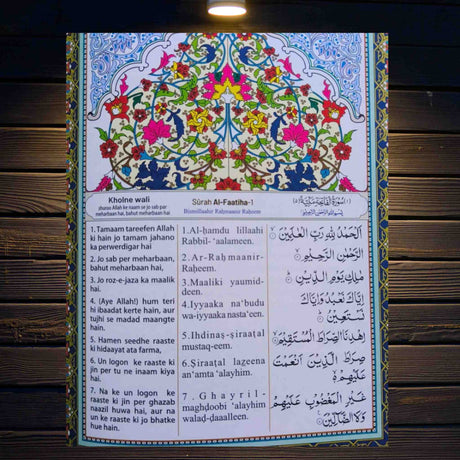 Kholne wali
shuroo Allah ke naam se jo sab par
meharbaan hai, bahut meharbaan hai
Sūrah Al-Faatiha-1
Bismillaahir Raḥmaanir Raḥeem
1. Tamaam tareefen Allah
ki hain jo tamam jahano
ka perwerdigar hai
2. Jo sab per meharbaan,
bahut meharbaan hai.
3. Jo roz-e-jaza ka maalik
hai.
4. (Aye Allah!) hum teri
hi ibaadat kerte hain, aur
tujhi se madad maangte
hain.
5. Hamen seedhe raaste
ki hidaayat ata farma,
6. Un logon ke raaste ki
jin per tu ne inaam kiya
hai.
7. Na ke un logon ke
raaste ki jin per ghazab
naazil huwa hai, aur na
un ke raaste ki jo bhatke
hue hain.
1.Al-ḥamdu lillaahi
Rabbil-'aalameen.
2.Ar-Raḥmaanir-
Raḥeem.
3.Maaliki yaumid-
deen.
4.Iyyaaka na'budu
wa-iyyaaka nasta'een.
5.Ihdinaṣ-ṣiraaṭal
mustaq-eem.
6.Ṣiraaṭal lazeena
an'amta 'alayhim.
7. Ghayril-
maghḍoobi 'alayhim
walaḍ-ḍaaalleen.
اَلْحَمْدُ لِلّٰهِ رَبِّ الْعٰلَمِيْنَ
الرَّحْمٰنِ الرَّحِيْمِ
مٰلِكِ يَوْمِ الدِّيْنِ
اِيَّاكَ نَعْبُدُ وَاِيَّاكَ
نَسْتَعِيْنُ
اِهْدِنَا الصِّرَاطَ الْمُسْتَقِيْمَ
صِرَاطَ الَّذِيْنَ اَنْعَمْتَ
عَلَيْهِمْ
غَيْرِ الْمَغْضُوْبِ عَلَيْهِمْ
وَلَا الضَّآلِّيْنَ